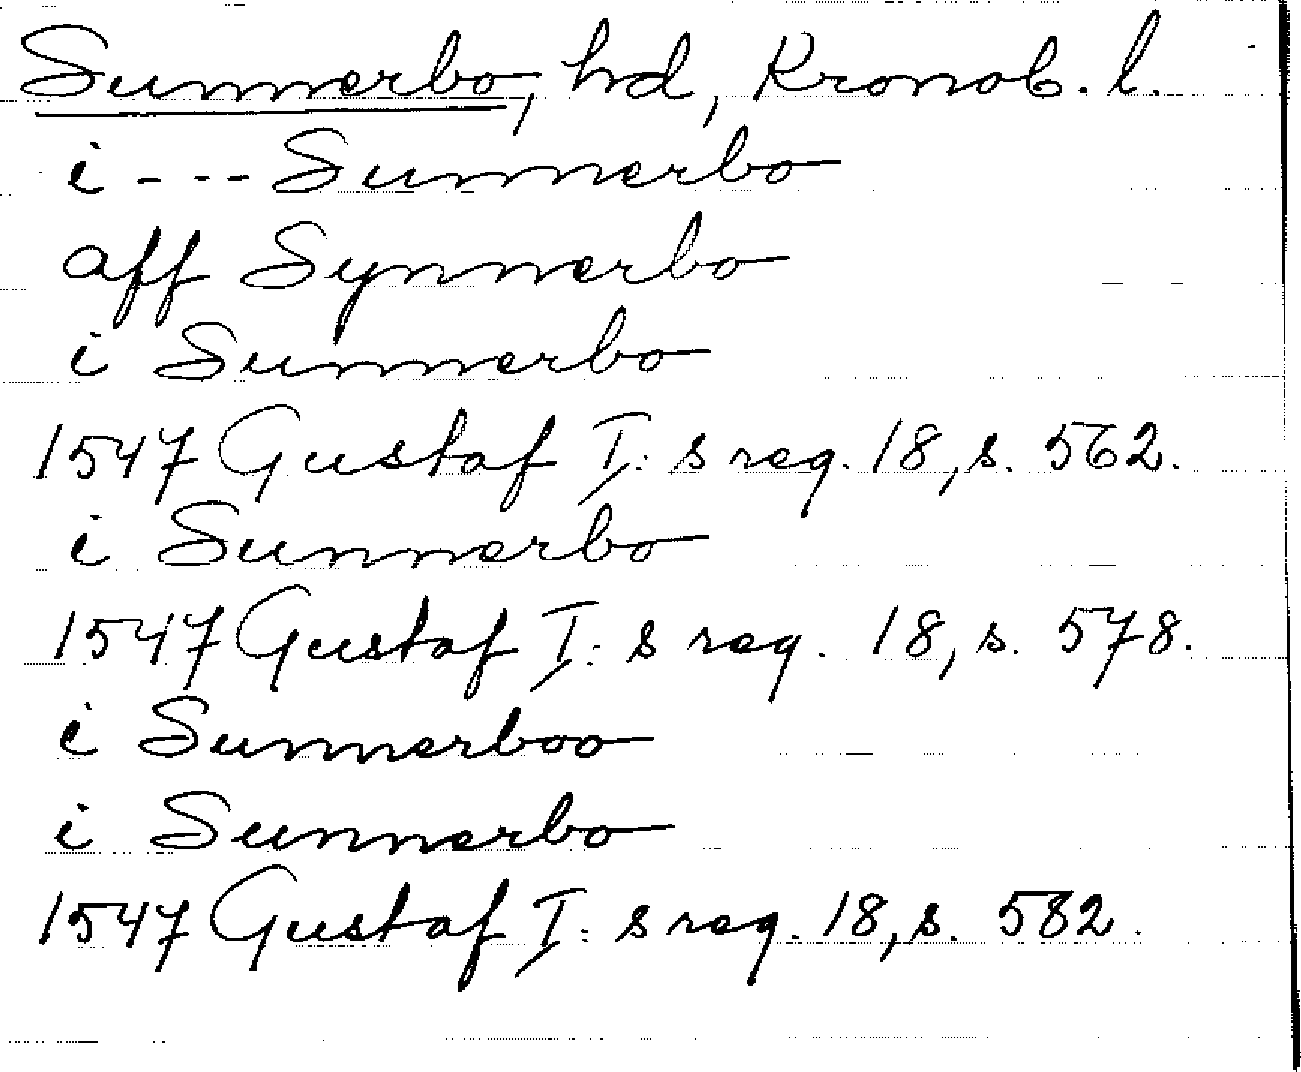 Sunnerbo, hd, Kronob. l.
i --- Sunnerbo
aff Synnerbo
i Sunnerbo
1547 Gustaf I:s reg. 18, s. 562.
i Sunnerbo
1547 Gustaf I:s reg. 18, s. 578.
i Sunnerboo
i Sunnerbo
1547 Gustaf I:s reg. 18, s. 582.